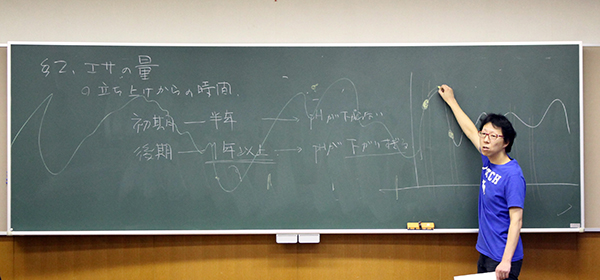 §2、エサの量
○立ち上げからの時間.
初期 — 半年 → pHが下がらない
後期 — 1年以上 → pHが下がりすぎる